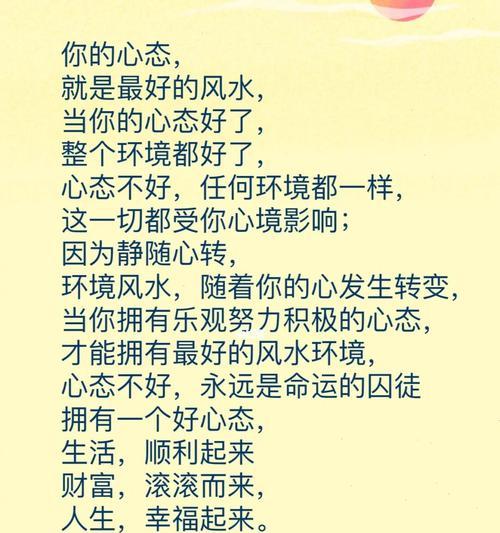 你的心态，
就是最好的风水，
当你的心态好了，
整个环境都好了，
心态不好，任何环境都一样，
这一切都受你心境影响；
因为静随心转，
环境风水，随着你的心发生转变，
当你拥有乐观努力积极的心态，
才能拥有最好的风水环境，
心态不好，永远是命运的囚徒
拥有一个好心态，
生活，顺利起来
财富，滚滚而来，
人生，幸福起来。